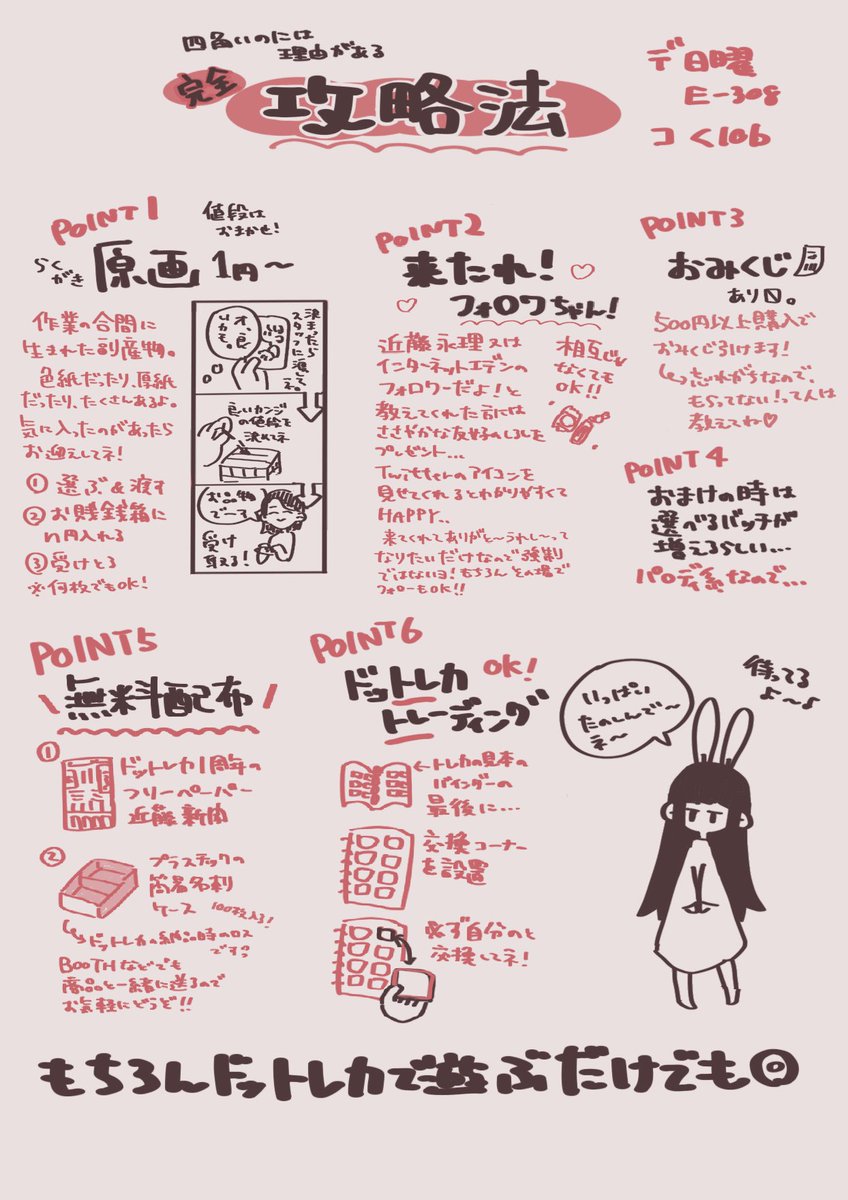 四角いのには
理由がある
完全
攻略法
デ日曜
E-308
コ く106
POINT1
値段は
おまかせ!
らくがき
原画 1円〜
作業の合間に
生まれた副産物。
色紙だったり、原紙
だったり、たくさんあるよ。
気に入ったのがあったら
お迎えしてネ!
① 選ぶ&渡す
② お賽銭箱に
n円入れる
③ 受けとる
※何枚でもOK!
決まったら
スタッフに渡してネ。
オ、良
いかも。
良いカンジ
の値段で
決めてネ
お品物
でーす
受け
取る!
POINT2
来たれ!
フォロワちゃん!
近藤永理又は
インターネットエデンの
フォロワーだよ!と
教えてくれた方には
ささやかな友好のしるしを
プレゼント...
Twitterのアイコンを
見せてくれるとわかりやすくて
HAPPY..
来てくれてありがと〜うれし〜って
なりたいだけなので強制
ではないヨ!もちろんその場で
フォローもOK!!
相互じゃ
なくても
OK!!
POINT3
おみくじ
あり〼。
500円以上購入で
おみくじ引けます!
忘れがちなので、
もらってない!って人は
教えてね♡
POINT4
おまけの時は
選べるバッチが
増えるらしい...
パロディ系なので...
POINT5
無料配布
①
ドットレカ1周年の
フリーペーパー
近藤新聞
②
プラスチックの
簡易名刺
ケース 100枚入る!
ドットレカの納品時のロス
です?
BOOTHなどでも
商品と一緒に送るので
お気軽にどうぞ!!
POINT6
ドットレカ OK!
トレーディング
←トレカの見本の
バインダーの
最後に...
交換コーナー
を設置
必ず自分のと
交換してネ!
いっぱい
たのしんで〜
ネ〜
待ってる
よ〜♪
もちろんドットレカで遊ぶだけでも◎